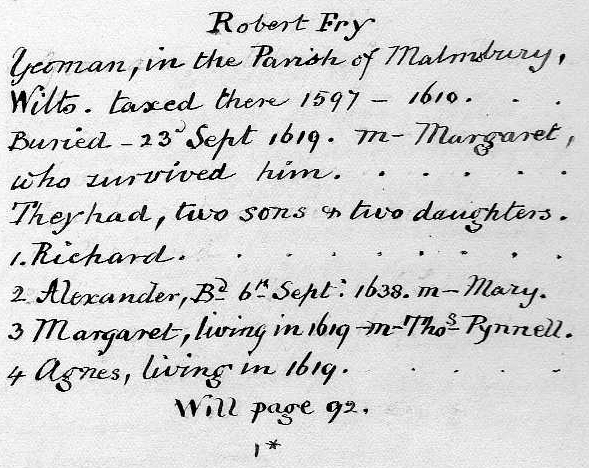 Robert Fry
Yeoman, in the Parish of Malmsbury,
Wilts. taxed there 1597 – 1610. . .
Buried – 23d Sept 1619. m– Margaret,
who survived him. . . . . .
They had, two sons & two daughters.
1. Richard. . . . . . . .
2 Alexander, Bd 6th Sept: 1638. m– Mary.
3 Margaret, living in 1619 – m– Thos Pynnell.
4 Agnes, living in 1619. . . . .
Will page 92.
1*